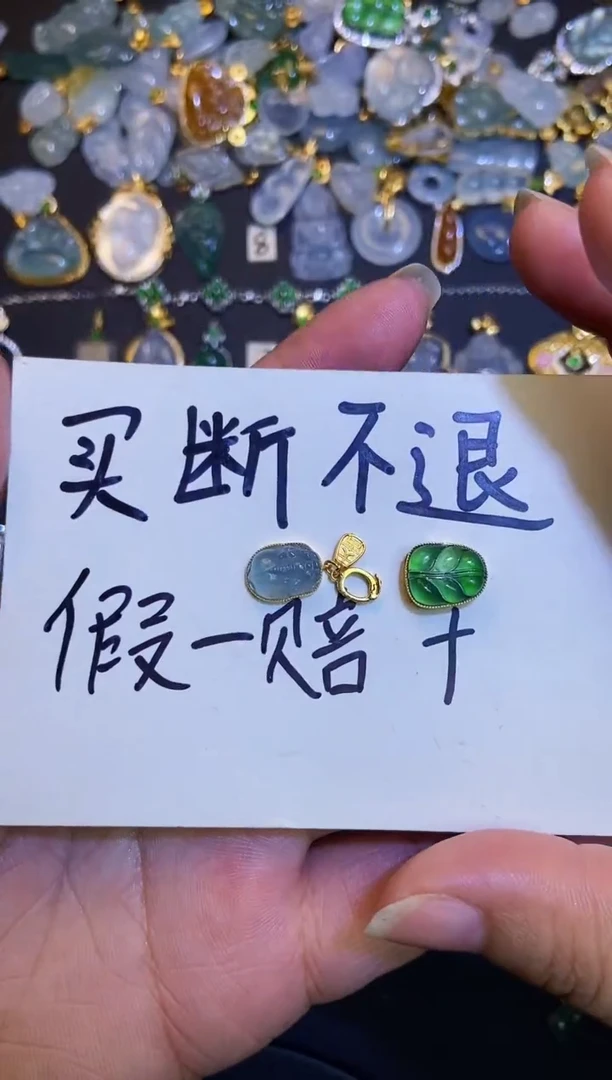 8
买断不退
假一赔十